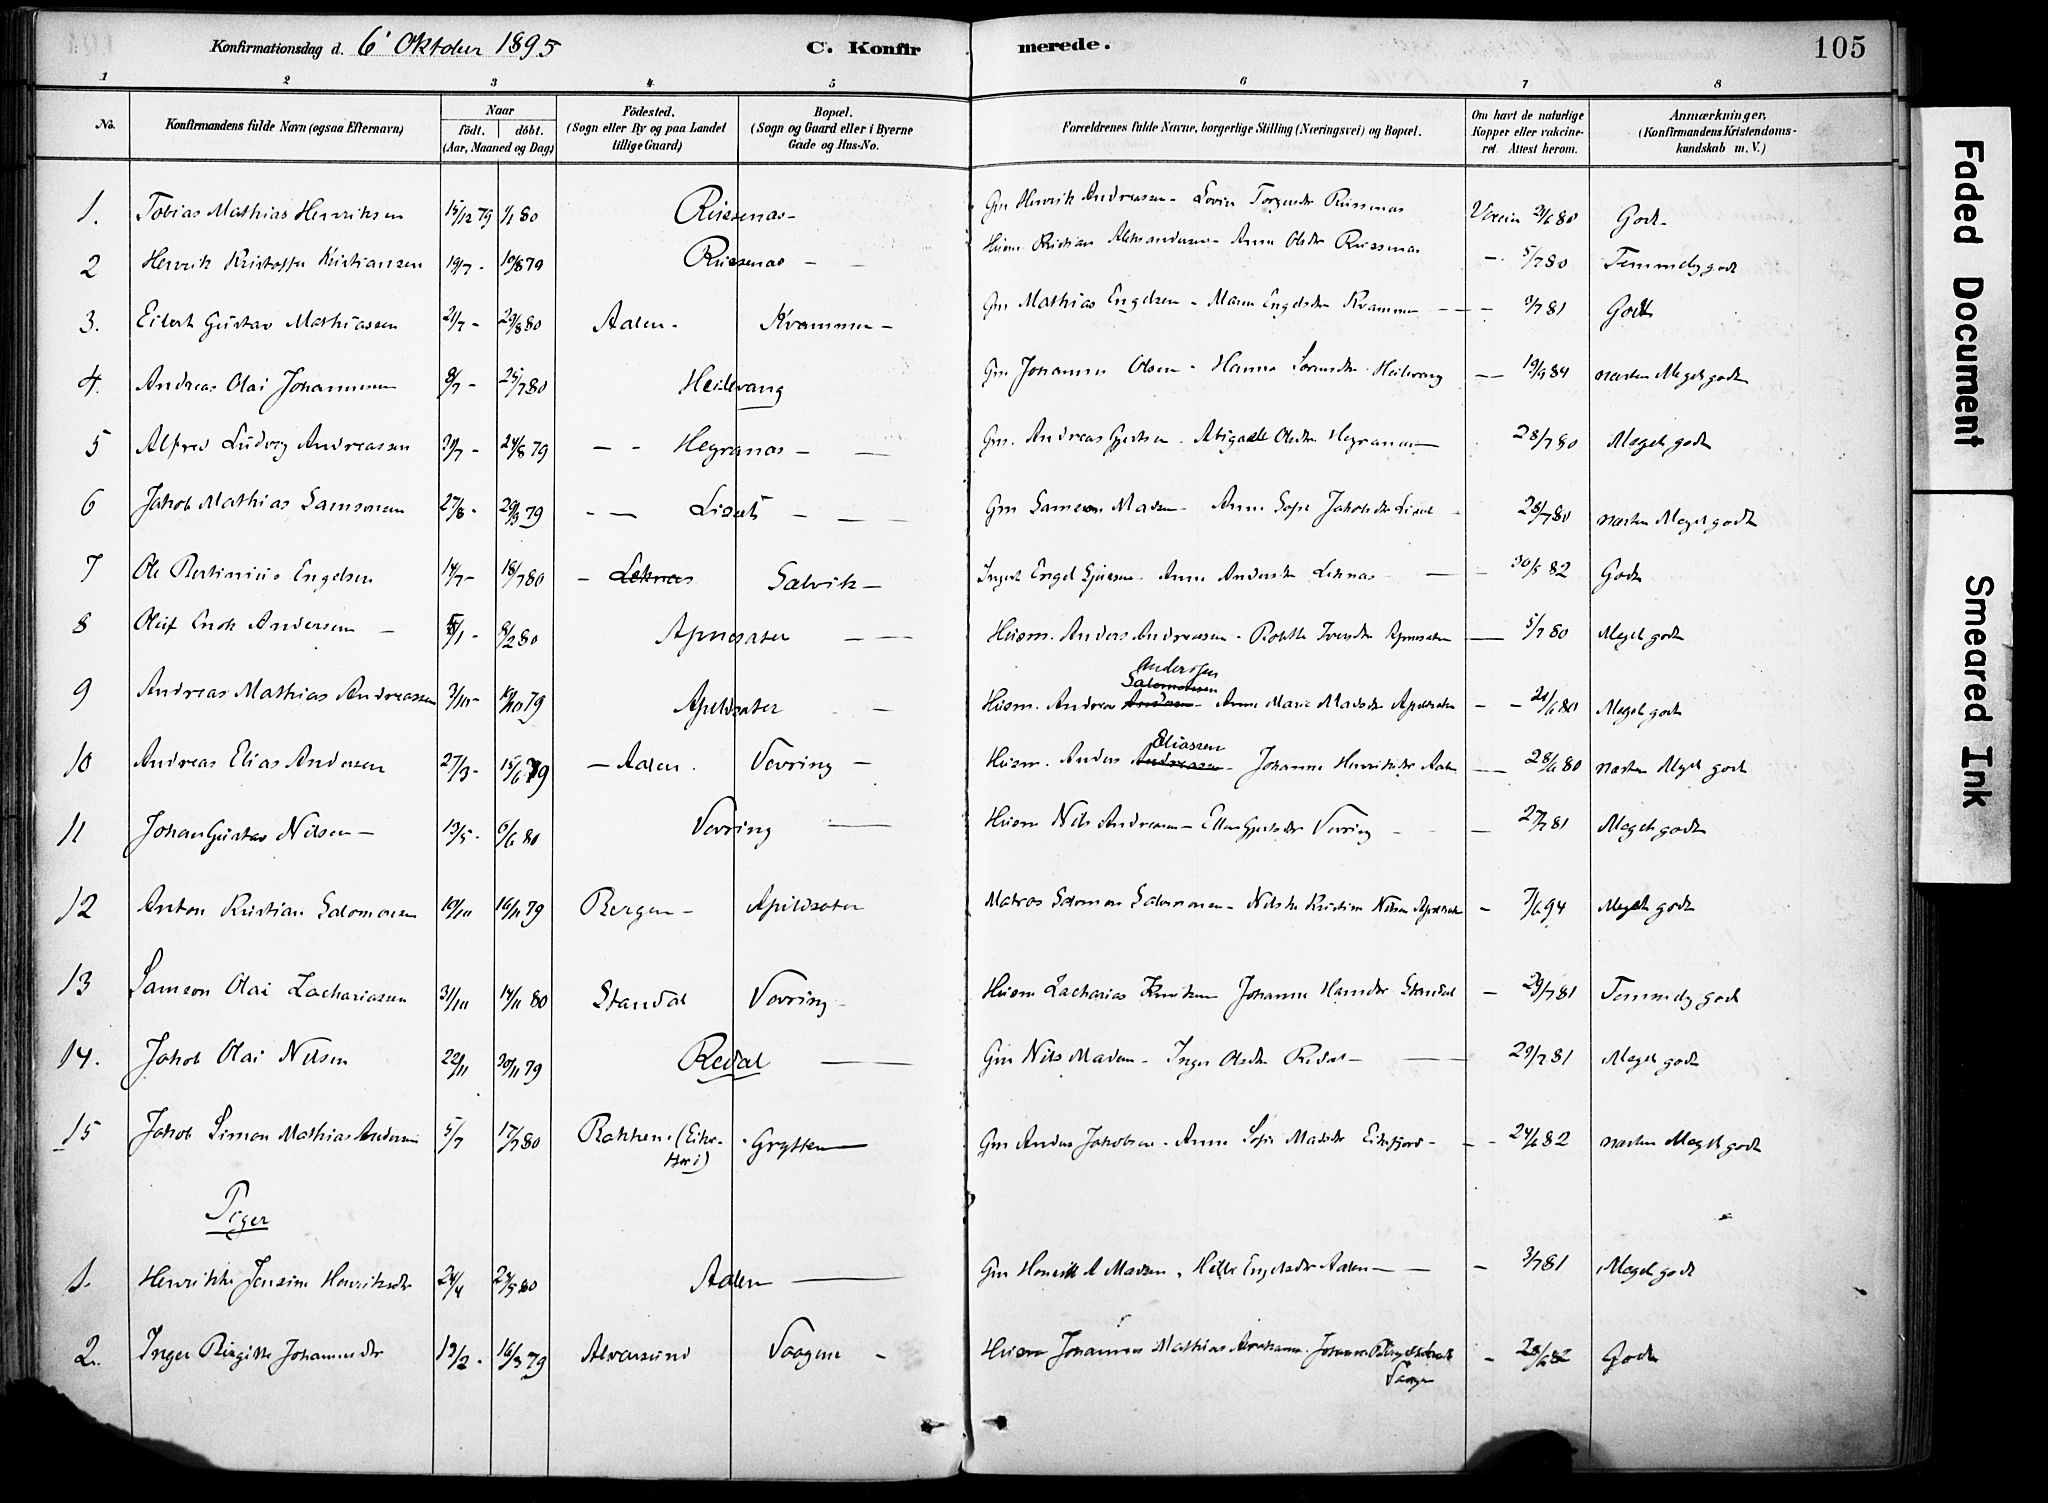 Konfirmationsdag d. 6' Oktober 1895 C. Konfirmerede. 105
1 2 3 4 5 6 7 8
No. Konfirmandens fulde Navn (ogsaa Efternavn) Naar födt. döbt. (Aar, Maaned og Dag) Födested. (Sogn eller By og paa Landet tillige Gaard) Bopæl. (Sogn og Gaard eller i Byerne Gade og Hus-No. Forældrenes fulde Navne, borgerlige Stilling (Næringsvei) og Bopæl. Om havt de naturlige Kopper eller vakcineret. Attest herom. Anmærkninger. (Konfirmandens Kristendomskundskab m. V.)
1. Tobias Mathias Henriksen 15/12 79 1/1 80 Russenas - Gm Henrik Andreassen - Lovise Russenas 21/6 80 Godt
2 Henrik Kristoffer Kristiansen 19/7 - 10/8 79 Russenas - - Husm Kristian Aleksandersen - Anne Olsdtr Russenas - 5/7 80 Temmelig godt
3. Eilert Gustav Mathiassen 21/7 - 29/8 80 Aalen - Kvammen - Gm Mathias Engelsen - Maren Engelsdtr Kvammen - - 9/7 81 Godt
4. Andreas Olai Johannesen 8/7 - 25/7 80 Heilevang Gm Johannes Olsen - Hanna Heilevang - 19/9 84 næsten Meget godt
5 Alfred Ludvig Andreassen 31/7 - 24/8 79 - - Hegranas - - Gm. Andreas Gjertsen - Abigael Olsdtr Hegranas 28/7 80 Meget godt
6 Jakob Mathias Samsonsen 27/8 - 29/9 79 - - Liset - - Gm Samson Madsen - Anne Sofie Jakobsdtr Liset - 28/7 80 næsten Meget godt
7 Ole Bertinius Engelsen 14/7 - 18/7 80 - Leknes Salvik - Engel - Anne Andersdtr Leknas - - 30/5 82 Godt
8 Oluf Enok Andersen - 5/1 - 8/2 80 Apnesater - - Husm. Anders Andreassen - Iversdtr Apnesater - 5/7 80 Meget godt
9 Andreas Mathias Andreassen 3/10 - 19/10 79 Apeldsater - Husm. Andreas Anderssen Salomonsen Andersen - Anne Marie Madsdtr Apeldsater - - 21/6 80 Meget godt
10 Andreas Elias Andersen 27/3 - 15/6 79 - Aalen. Vevring - Husm. Anders Eliassen Andreassen - Johanne Henriksdtr Aalen - 28/6 80 næsten Meget godt
11 Johan Gustav Nilsen - 13/5 - 6/6 80 Vevring - Husm Nils Andreasen - Ellen Gjertsdtr Vevring - - 27/7 81 Meget godt
12 Anton Kristian Salomonsen 10/10 16/11 79 Bergen - Apeldsater Matros Salomon Salomonsen - Kristine Nilsen Apeldsater - 7/6 94 Meget godt
13 Samson Olai Zachariassen 31/10 14/11 80 Standal Vevring - Husm Zacharias Johanne Hansdtr Standal - 29/7 81 Temmelig godt
14. Jakob Olai Nilsen 22/11 30/11 79 Redal - Gm Nils Madsen - Inger Olsdtr Redal - - 29/7 81 Meget godt
15 Jakob Simon Mathias Andersen 5/7 17/7 80 Grytten Gm Anders Jakobsen - Anne Sofie Madsdtr Eikefjord - - 24/6 82 næsten Meget godt
Piger
1. Henrikke Jensine Henriksdtr 24/4 29/5 80 Aalen - Gm Henrik A Madsen, Helle Engelsdtr Aalen - - 3/7 81 Meget godt
2. Inger Birgitte Johannesdtr 13/2 - 16/3 79 Alversund Vaagene - Husm Johannes Mathias - Johanne - 28/6 82 Godt
Faded Document
Smeared Ink